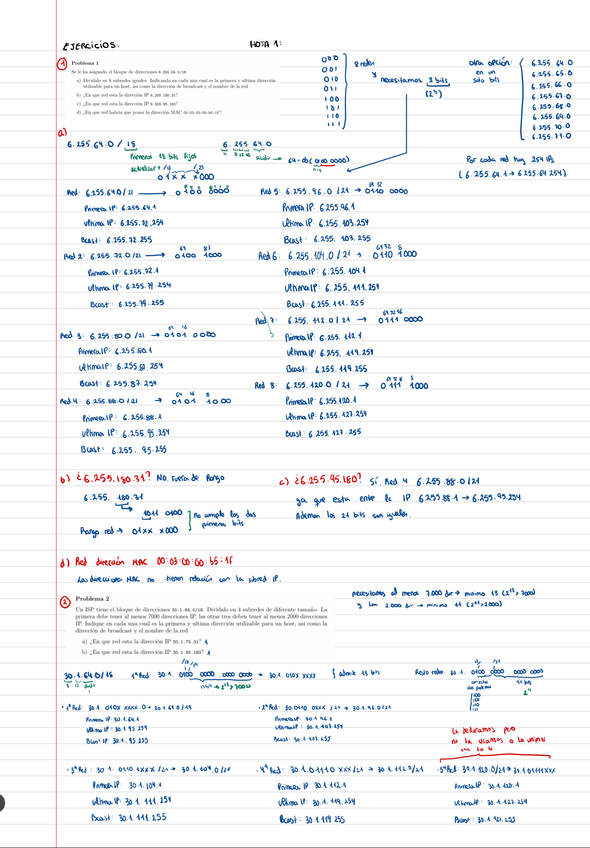 EJERCICIOS.
HOJA 1:
1
Problema 1
Se le ha asignado el bloque de direcciones 6.255.64.0/18
a) Divídalo en 8 subredes iguales. Indicando en cada cual es la primera y última dirección
utilizable para un host, así como la dirección de broadcast y el nombre de la red
b) ¿En que red esta la dirección IP 6.255.180.31?
c) ¿En que red esta la dirección IP 6.255.95.180?
d) ¿En que red habría que poner la dirección MAC
000
001
010
011
100
101
110
111
8 redes
y
necesitamos 3 bits
(2³)
Otra opción:
en un
solo bits
6.255.64.0
6.255.65.0
6.255.66.0
6.255.67.0
6.255.68.0
6.255.69.0
6.255.70.0
6.255.71.0
Por cada red hay 254 IPs
(6.255.64.1 → 6.255.64.254)
a)
6.255.64.0 / 18
6.255.64.0
Primeros 18 bits fijos
64 → 0100 0000
01xx x000
Red: 6.255.64.0/21 → 0100 0000
Primera IP: 6.255.64.1
Última IP: 6.255.72.254
Bcast: 6.255.72.255
Red 2: 6.255.72.0/21 → 0100 1000
Primera IP: 6.255.72.1
Última IP: 6.255.79.254
Bcast: 6.255.79.255
Red 3: 6.255.80.0/21 → 0101 0000
Primera IP: 6.255.80.1
Última IP: 6.255.87.254
Bcast: 6.255.87.254
Red 4: 6.255.88.0/21 → 0101 1000
Primera IP: 6.255.88.1
Última IP: 6.255.95.254
Bcast: 6.255.95.255
Red 5: 6.255.96.0/21 → 0110 0000
Primera IP: 6.255.96.1
Última IP: 6.255.103.254
Bcast: 6.255.103.255
Red 6: 6.255.104.0/21 → 0110 1000
Primera IP: 6.255.104.1
Última IP: 6.255.111.254
Bcast: 6.255.111.255
Red 7: 6.255.112.0/21 → 0111 0000
Primera IP: 6.255.112.1
Última IP: 6.255.119.254
Bcast: 6.255.119.255
Red 8: 6.255.120.0/21 → 0111 1000
Primera IP: 6.255.120.1
Última IP: 6.255.127.254
Bcast: 6.255.127.255
b) ¿6.255.180.31? NO. Fuera de Rango
6.255.180.31
1011 0100
No cumple los dos
primeros bits
Rango red → 01xx x000
c) ¿6.255.95.180? Sí. Red 4 6.255.88.0/21
ya que esta entre la IP 6.255.88.1 → 6.255.95.254.
Ademas los 21 bits son iguales.
d) Red dirección MAC
Las direcciones MAC no tienen relación con la subred IP.
2
Problema 2
Un ISP tiene el bloque de direcciones 30.1.64.0/18. Divídalo en 4 subredes de diferente tamaño. La
primera debe tener al menos 7000 direcciones IP, las otras tres deben tener al menos 2000 direcciones
IP. Indique en cada una cual es la primera y última dirección utilizable para un host, así como la
dirección de broadcast y el nombre de la red
a) ¿En que red esta la dirección IP 30.1.75.31? 1
b) ¿En que red esta la dirección IP 30.1.95.180? 1
necesitamos al menos 7.000 dir → mínimo 13 (2¹³ > 7000)
y con 2000 dir → mínimo 11 (2¹¹ > 2000)
30.1.64.0/18
1ª Red: 30.1. 0100 0000 . 0000 0000 → 30.1.010x xxxx
admite 13 bits
Resto redes: 30.1. 0100 0000 0000 0000
11 bits
· 1ª Red: 30.1. 010x xxxx 0 → 30.1.64.0/19
Primera IP: 30.1.64.1
Última IP: 30.1.95.254
Bcast IP: 30.1.95.255
· 2ª Red: 30.1.0110 0xxx /21 → 30.1.96.0/21
Primera IP: 30.1.96.1
Última IP: 30.1.103.254
Bcast: 30.1.103.255
La dedicamos pero
no la usamos o la unimos
con la 4
· 3ª Red: 30.1. 0110 1xxx /21 → 30.1.104.0/21
Primera IP: 30.1.104.1
Última IP: 30.1.111.254
Bcast: 30.1.111.255
· 4ª Red: 30.1.01110 xxx/21 → 30.1.112.0/21
Primera IP: 30.1.112.1
Última IP: 30.1.119.254
Bcast: 30.1.119.255
· 5ª Red: 30.1.120.0/21 → 30.1.01111xxx
Primera IP: 30.1.120.1
Última IP: 30.1.127.254
Bcast: 30.1.127.255